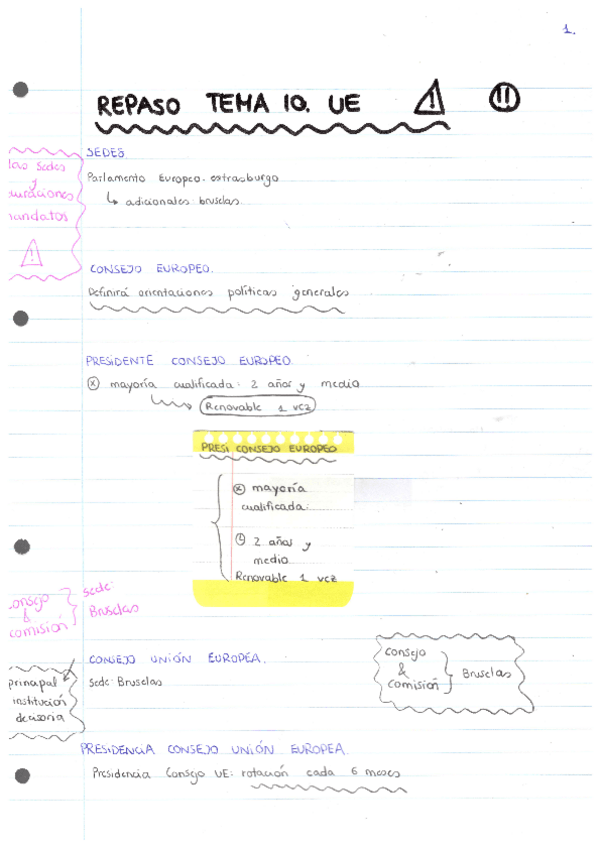 1.
REPASO TEMA 10. UE
SEDES.
las sedes
y
duraciones
mandatos
Parlamento Europeo. estrasburgo
adicionales: bruselas.
CONSEJO EUROPEO.
Definirá orientaciones políticas generales
PRESIDENTE CONSEJO EUROPEO
mayoría cualificada: 2 años y medio
Renovable 1 vez
PRESI CONSEJO EUROPEO
mayoría
cualificada:
2 años y
medio
Renovable 1 vez
consejo
&
comisión
sede:
Bruselas
CONSEJO UNIÓN EUROPEA.
sede: Bruselas
principal
institución
decisoria
consejo
&
comisión
Bruselas
PRESIDENCIA CONSEJO UNIÓN EUROPEA.
Presidencia Consejo UE: rotación cada 6 meses